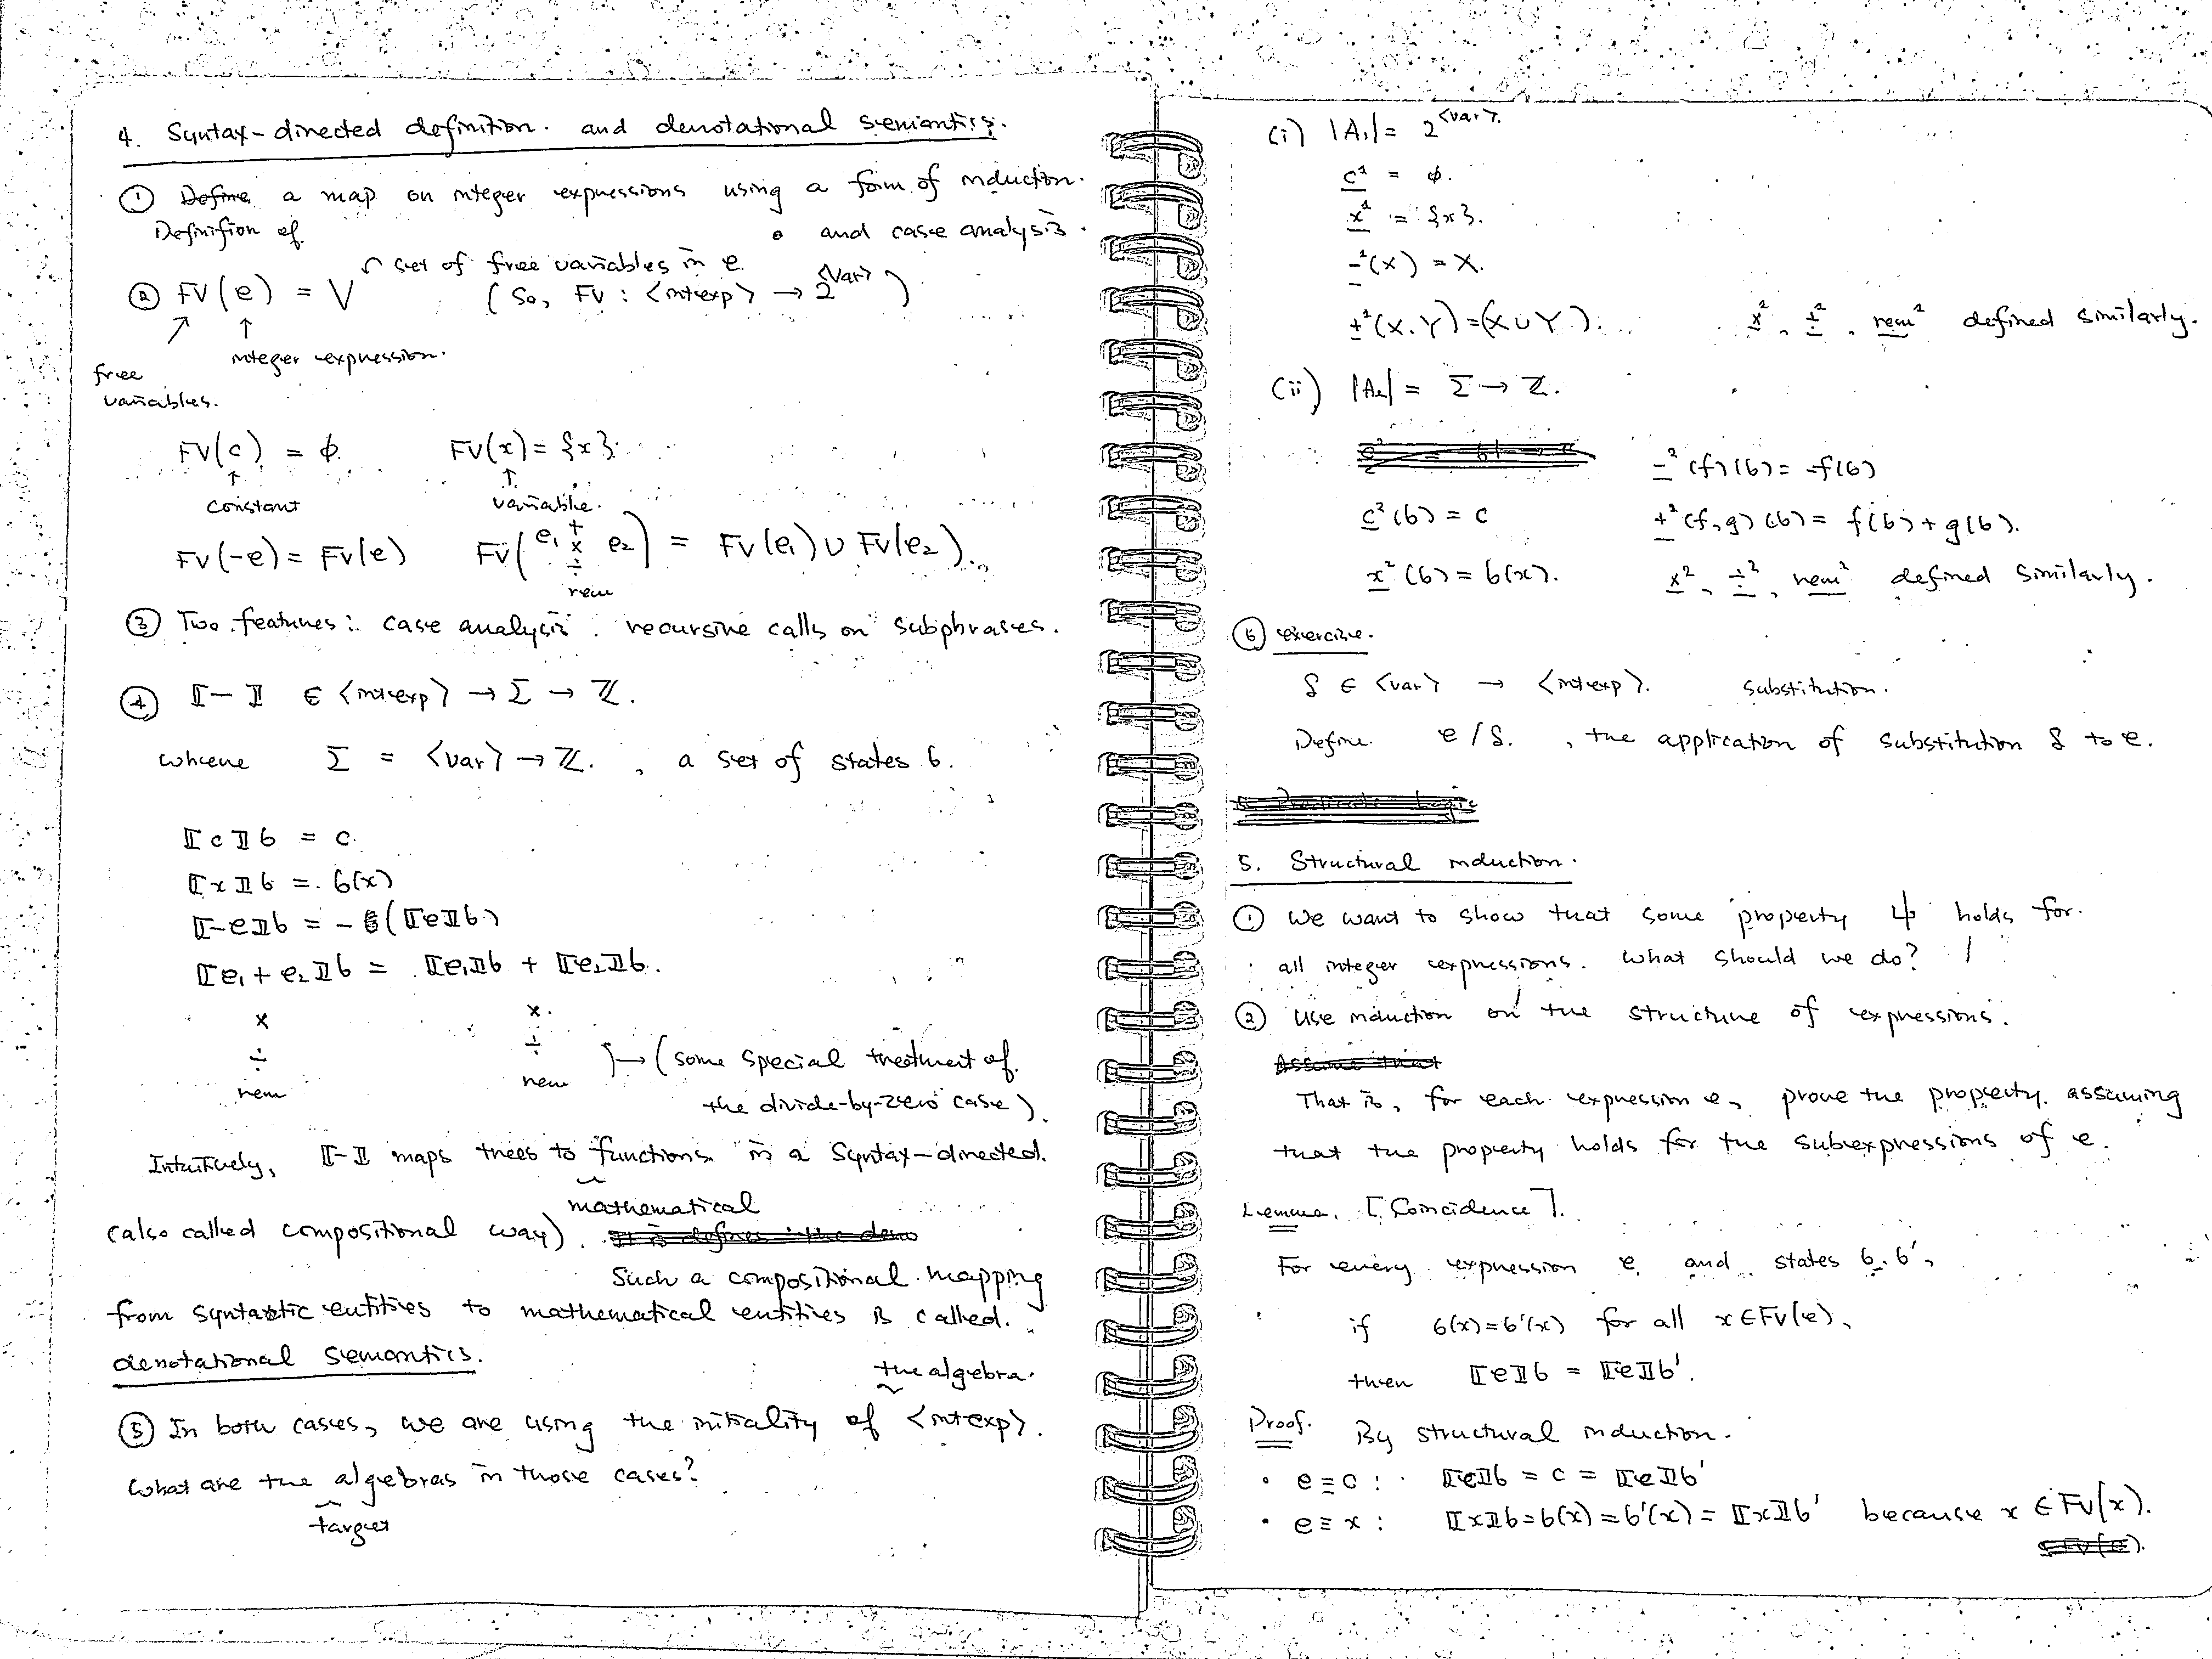 4. Syntax-directed definition. and denotational semantics.
① Define a map on integer expressions using a form of induction.
Definition of • and case analysis.
② FV(e) = V set of free variables in e. (So, FV : <intexp> → 2^<var>)
integer expression.
free
variables.
FV(c) = ϕ. FV(x) = {x}.
constant variable.
FV(-e) = FV(e) FV(e₁ + × ÷ rem e₂) = FV(e₁) ∪ FV(e₂).
③ Two features: case analysis. recursive calls on subphrases.
④ ⟦-⟧ ∈ <intexp> → Σ → ℤ.
where Σ = <var> → ℤ. , a set of states σ.
⟦c⟧σ = c.
⟦x⟧σ = σ(x)
⟦-e⟧σ = -(⟦e⟧σ)
⟦e₁ + e₂⟧σ = ⟦e₁⟧σ + ⟦e₂⟧σ.
× ×.
÷ ÷
rem rem → (some special treatment of
the divide-by-zero case).
Intuitively, ⟦-⟧ maps trees to mathematical functions in a syntax-directed.
(also called compositional way).
Such a compositional mapping
from syntactic entities to mathematical entities is called.
denotational semantics.
⑤ In both cases, we are using the initiality of the algebra. <intexp>.
What are the target algebras in those cases?
(i) |A₁| = 2^<var>.
c¹ = ϕ.
x¹ = {x}.
-¹(X) = X.
+¹(X, Y) = (X ∪ Y). ×¹, ÷¹, rem¹ defined similarly.
(ii) |A₂| = Σ → ℤ.
-²(f)(σ) = -f(σ)
c²(σ) = c +²(f, g)(σ) = f(σ) + g(σ).
x²(σ) = σ(x). ×², ÷², rem² defined similarly.
⑥ exercise.
δ ∈ <var> → <intexp>. substitution.
Define e / δ. , the application of substitution δ to e.
5. Structural induction.
① We want to show that some property ψ holds for.
all integer expressions. What should we do?
② Use induction on the structure of expressions.
Assume that
That is, for each expression e, prove the property assuming
that the property holds for the subexpressions of e.
Lemma. [Coincidence].
For every expression e and states σ, σ',
if σ(x) = σ'(x) for all x ∈ FV(e),
then ⟦e⟧σ = ⟦e⟧σ'.
Proof. By structural induction.
• e ≡ c : ⟦e⟧σ = c = ⟦e⟧σ'
• e ≡ x : ⟦x⟧σ = σ(x) = σ'(x) = ⟦x⟧σ' because x ∈ FV(x).